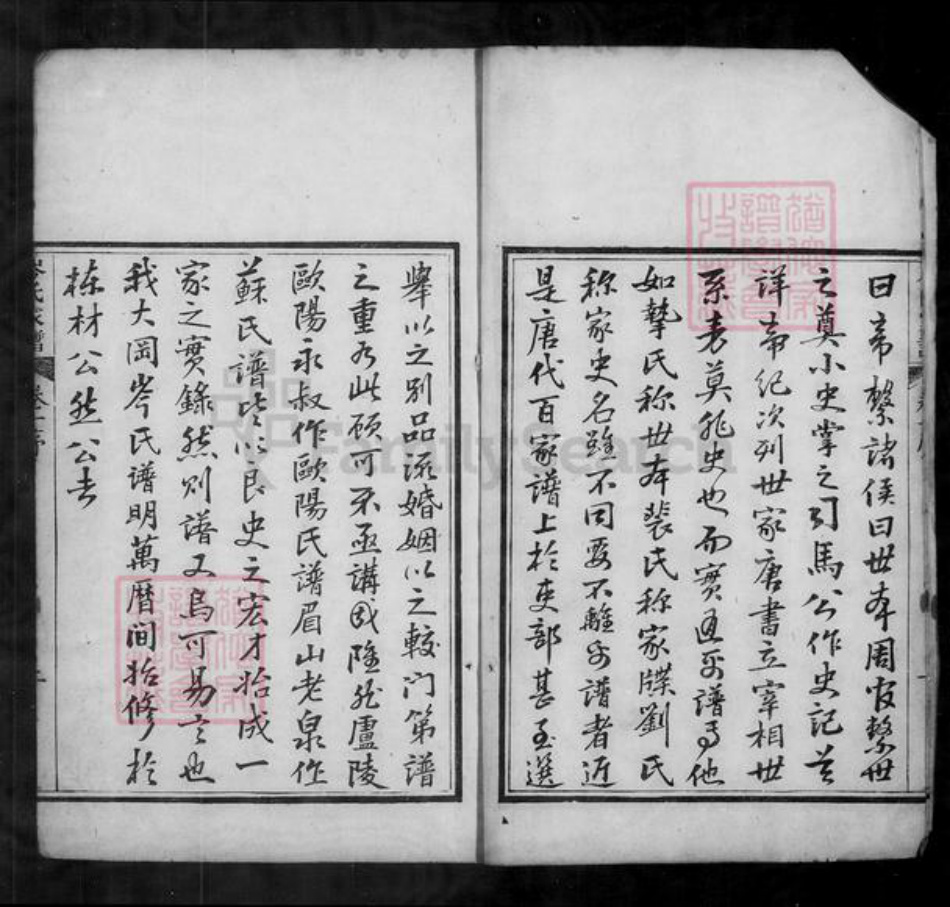 曰帝繫諸侯曰世本周官繫世
之奠小史掌之司馬公作史記首
詳帝紀次列世家唐書立宰相世
系表莫非史也而實通乎譜焉他
如摯氏称世本裴氏称家牒劉氏
称家史名雖不同要不離乎譜者近
是唐代百家譜上於吏部甚至選
舉以之別品流婚姻以之較門第譜
之重如此顧可不亟講或隆然廬陵
歐陽永叔作歐陽氏譜眉山老泉作
蘇氏譜皆以良史之宏才始成一
家之實錄然則譜又烏可易言也
我大岡岑氏譜明萬曆间始修於
棟材公然公去
岑氏家譜
卷一序
FamilySearch